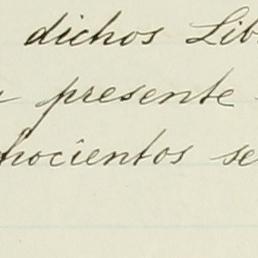 dichos Lib
presente
hocientos se